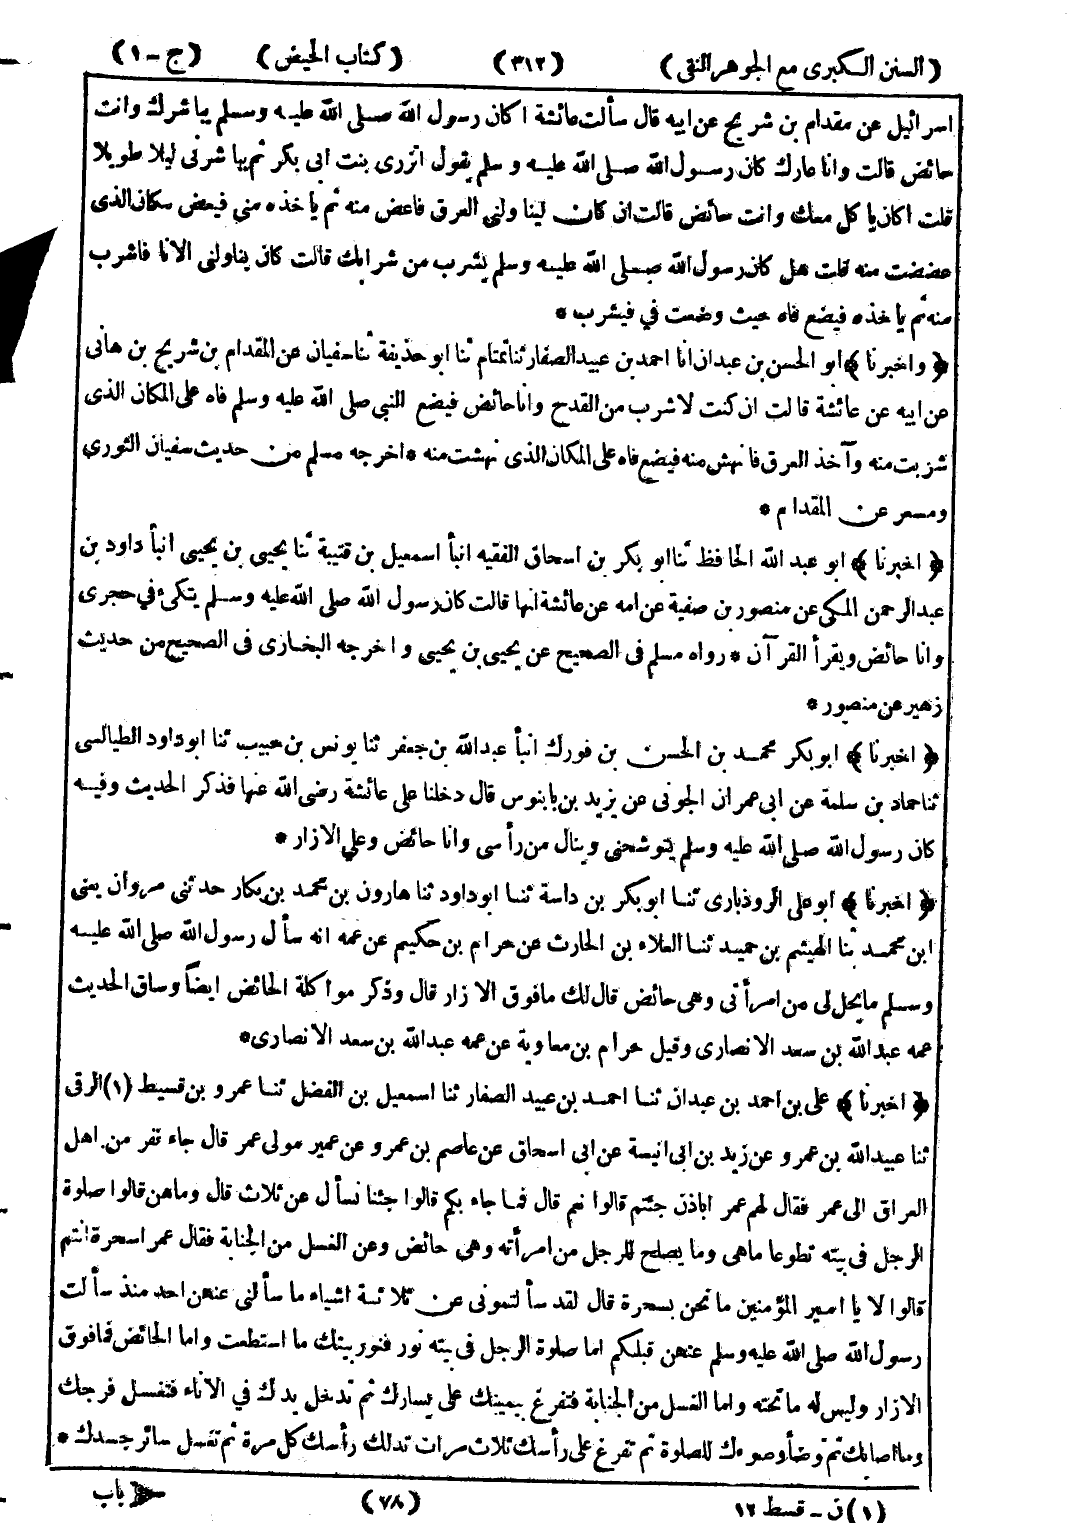 (السنن الكبرى مع الجوهر النقى) (٣١٢) (كتاب الحيض) (ج - ١)
اسرائيل عن مقدام بن شريح عن ابيه قال سألت عائشة اكان رسول الله صلى الله عليه وسلم يباشرك وانت
حائض قالت وانا عارك كان رسول الله صلى الله عليه وسلم يقول اتزرى بنت ابى بكر ثم يباشرنى ليلا طويلا
قلت اكان يا كل معك وانت حائض قالت ان كان لينا ولنى العرق فاعض منه ثم يا خذه منى فيعض مكان الذى
عضضت منه قلت هل كان رسول الله صلى الله عليه وسلم يشرب من شرابك قالت كان يناولنى الانا فاشرب
منه ثم يا خذه فيضع فاه حيث وضعت في فيشرب *
﴿ واخبرنا ﴾ ابو الحسن بن عبدان انا احمد بن عبيد الصفار ثنا تمتام ثنا ابو حذيفة ثنا سفيان عن المقدام بن شريح بن هانى
عن ابيه عن عائشة قالت ان كنت لا شرب من القدح وانا حائض فيضع النبي صلى الله عليه وسلم فاه على المكان الذى
شربت منه وآخذ العرق فانهش منه فيضع فاه على المكان الذى نهشت منه * اخرجه مسلم من حديث سفيان الثورى
ومسعر عن المقدام *
﴿ اخبرنا ﴾ ابو عبد الله الحافظ ثنا ابو بكر بن اسحاق الفقيه انبأ اسمعيل بن قتيبة ثنا يحيى بن يحيى انبأ داود بن
عبد الرحمن المكى عن منصور بن صفية عن امه عن عائشة انها قالت كان رسول الله صلى الله عليه وسلم يتكئ في حجرى
وانا حائض ويقرأ القرآن * رواه مسلم فى الصحيح عن يحيى بن يحيى واخرجه البخارى فى الصحيح من حديث
زهير عن منصور *
﴿ اخبرنا ﴾ ابو بكر محمد بن الحسن بن فورك انبأ عبد الله بن جعفر ثنا يونس بن حبيب ثنا ابو داود الطيالسى
ثنا حماد بن سلمة عن ابى عمران الجونى عن يزيد بن بابنوس قال دخلنا على عائشة رضى الله عنها فذكر الحديث وفيه
كان رسول الله صلى الله عليه وسلم يتوشحنى وينال من رأسى وانا حائض وعلي الازار *
﴿ اخبرنا ﴾ ابو على الروذبارى ثنا ابو بكر بن داسة ثنا ابو داود ثنا هارون بن محمد بن بكار حدثنى مروان يعنى
ابن محمد ثنا الهيثم بن حميد ثنا العلاء بن الحارث عن حرام بن حكيم عن عمه انه سأل رسول الله صلى الله عليه
وسلم ما يحل لى من امرأتى وهى حائض قال لك ما فوق الازار قال وذكر مواكلة الحائض ايضاً وساق الحديث
عمه عبد الله بن سعد الانصارى وقيل حرام بن معاوية عن عمه عبد الله بن سعد الانصارى *
﴿ اخبرنا ﴾ على بن احمد بن عبدان ثنا احمد بن عبيد الصفار ثنا اسمعيل بن الفضل ثنا عمرو بن قسيط (١) الرقى
ثنا عبيد الله بن عمرو عن زيد بن ابى انيسة عن ابى اسحاق عن عاصم بن عمرو عن عمير مولى عمر قال جاء نفر من اهل
العراق الى عمر فقال لهم عمر اباذن جئتم قالوا نعم قال فما جاء بكم قالوا جئنا نسأل عن ثلاث قال وماهن قالوا صلوة
الرجل فى بيته تطوعا ماهى وما يصلح للرجل من امرأته وهى حائض وعن الغسل من الجنابة فقال عمر اسحرة انتم
قالوا لا يا امير المؤمنين ما نحن بسحرة قال لقد سألتمونى عن ثلاثة اشياء ما سألنى عنهن احد منذ سألت
رسول الله صلى الله عليه وسلم عنهن قبلكم اما صلوة الرجل فى بيته نور فنور بيتك ما استطعت واما الحائض فما فوق
الازار وليس له ما تحته واما الغسل من الجنابة فتفرغ بيمينك على يسارك ثم تدخل يدك في الاناء فتغسل فرجك
وما اصابك ثم توضأ وضوءك للصلوة ثم تفرغ على رأسك ثلاث مرات تدلك رأسك كل مرة ثم تغسل سائر جسدك *
(١) ن - قسط ١٢ (٧٨) باب